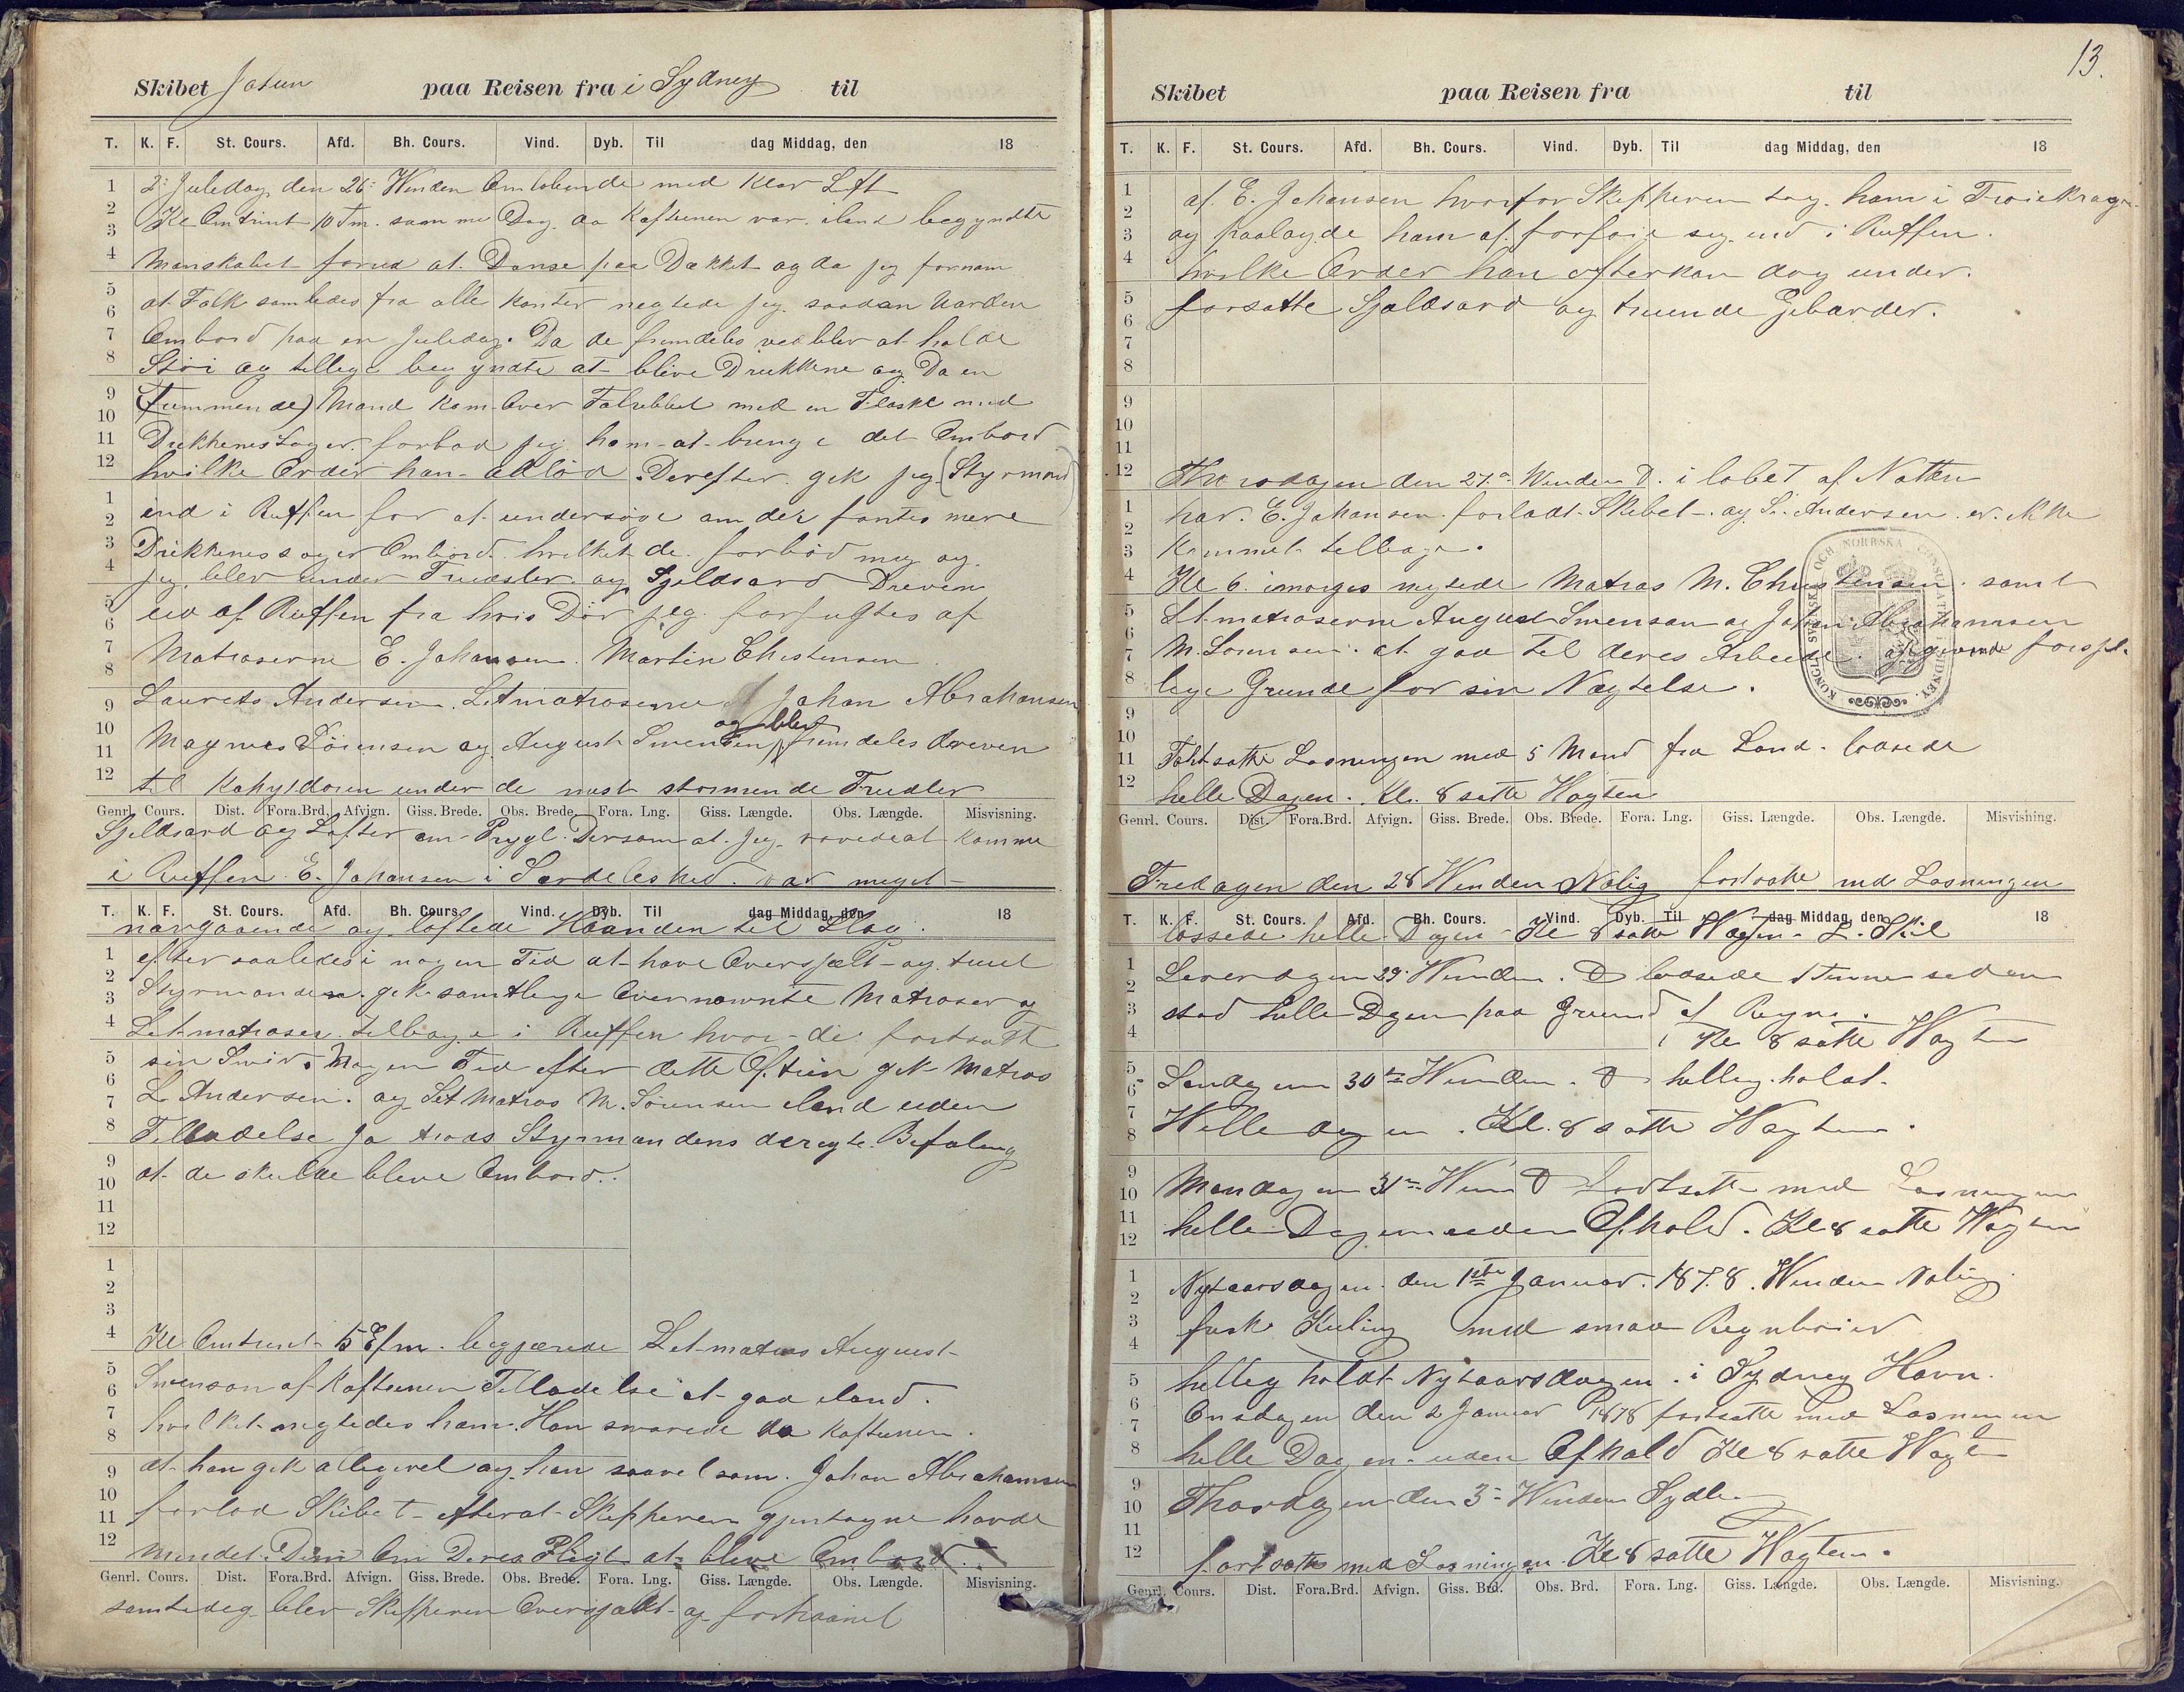 Skibet Jatun paa Reisen fra i Sydney til
T. K. F. St. Cours. Afd. Bh. Cours. Vind. Dyb. Til dag Middag, den 18
2: Juledag den 26: Winden Omlobende med klar Luft
Kl Omtrent 10 Fm. samme Dag da Kafteinen var iland begyndte
Manskabet forud at Danse paa Dækket og da jeg fornam
at Folk samledes fra alle kanter negtede jeg saadan Uorden
Ombord paa en Juledag. Da de fremdeles vedblev at holde
Støi og tillige begyndte at blive Drukkne og Da en
(Fremmende) Mand kom Over Falrebbet med en Flaske med
Drikkenes Sager forbød jeg ham at bringe det Ombord
hvilke Order han adlød. Derefter gik jeg (Styrmand)
ind i Ruffen for at undersøge om der fantes mere
Drikkenessager Ombord hvilket de forbød mig og
jeg blev under Trudsler og Sjeldsord Dreven
ud af Ruffen fra hvis Dør jeg forfulgtes af
Matroserne E. Johansen. Martin Christensen
Laurets Andersen. Letmatroserne Johan Abrahamsen
Magnus Sörensen og August Swensen og blev fremdeles dreven
til Kahytdøren under de mest stormende Trudler
Genrl. Cours. Dist. Fora.Brd. Afvign. Giss. Brede. Obs. Brede. Fora. Lng. Giss. Længde. Obs. Længde. Misvisning.
Sjeldsord og Løfter om Prygl. Dersom at jeg vovede at komme
i Ruffen. E. Johansen i Særdeleshed var meget
T. K. F. St. Cours. Afd. Bh. Cours. Vind. Dyb. Til dag Middag, den 18
nærgaaende og løftede Haanden til Slag.
efter saaledes i nogen Tid at have Oversjælt og truet
Styrmanden gik samtlige Overnævnte Matroser og
Letmatroser tilbage i Ruffen hvor de fortsatt
sin Swir. Nogen Tid efter dette Optrin gik Matros
L. Andersen. og Let Matros M. Sörensen iland uden
Tilladelse ja trods Styrmandens deregte Befaling
at de skulde blive Ombord.
Kl Omtrent 5 Efm. begjærede Letmatros August
Swenson af Kafteinen Tilladelse at gaa iland.
hvilket negtedes ham. Han svarede da Kafteinen.
at han gik alligevel og han saavel som Johan Abrahamsen
forlod Skibet efterat Skipperen gjentagne havde
mindet Dem Om Deres Pligt at blive Ombord.
Genrl. Cours. Dist. Fora.Brd. Afvign. Giss. Brede. Obs. Brede. Fora. Lng. Giss. Længde. Obs. Længde. Misvisning.
samtedig blev Skipperen Oversjælt og forhaanet
13.
Skibet paa Reisen fra til
T. K. F. St. Cours. Afd. Bh. Cours. Vind. Dyb. Til dag Middag, den 18
af E. Johansen hvorfor Skipperen tog ham i Troiekragen
og paalagde ham at forføie seg ind i Ruffen.
hvilke Order han efterkom dog under.
forsatte Sjældsord og truende Gebarder.
Thorsdagen den 27de Winden D. i løbet af Natten
har E. Johansen forladt Skibet og L. Andersen er ikke
kommet tilbage.
Kl 6 imorges negtede Matros M. Christensen samt
Letmatroserne August Swensen og Johan Abrahamsen
M. Sorensen. at gaa til deres Arbeide. afgivende forsjel-
lige Grunde for sin Nægtelse.
KONGL. SVENSKA OCH NORRSKA CONSULATET I SIDNEY.
Fohtsatte Losningen med 5 Mand fra Land. lossede
helle Dagen. Kl. 8 satte Wagten
Genrl. Cours. Dist. Fora.Brd. Afvign. Giss. Brede. Obs. Brede. Fora. Lng. Giss. Længde. Obs. Længde. Misvisning.
Fredagen den 28 Winden Nolig fortsatte med Losningen
T. K. F. St. Cours. Afd. Bh. Cours. Vind. Dyb. Til dag Middag, den 18
lossede helle Dagen Kl 8 satte Wagten
Løverdagen 29: Winden. D lossede Timme sedan
stod helle Dagen paa Grund af Regne.
Kl 8 satte Wagten
Søndagen 30te Winden. D hellig holdt
Helle dagen. Kl. 8 satte Wagten.
Mandagen 31te Wind D fortsatte med Losningen
helle Dagen uden Ophold. Kl 8 satte Wagten
Nytaarsdagen den 1ste Januar. 1878. Winden Nolig
frisk Kuling med smaa Regnbøier
hellig holdt Nytaarsdagen. i Sydney Havn.
Onsdagen den 2 Januar 1878 fortsatte med Losningen
helle Dagen uden Ophold Kl 8 satte Wagt
Thorsdagen den 3: Winden Sydle
fortsatte med Losningen. Kl 8 satte Wagten.
Genrl. Cours. Dist. Fora.Brd. Afvign. Giss. Brd. Obs. Brd. Fora. Lng. Giss. Længde. Obs. Længde. Misvisning.